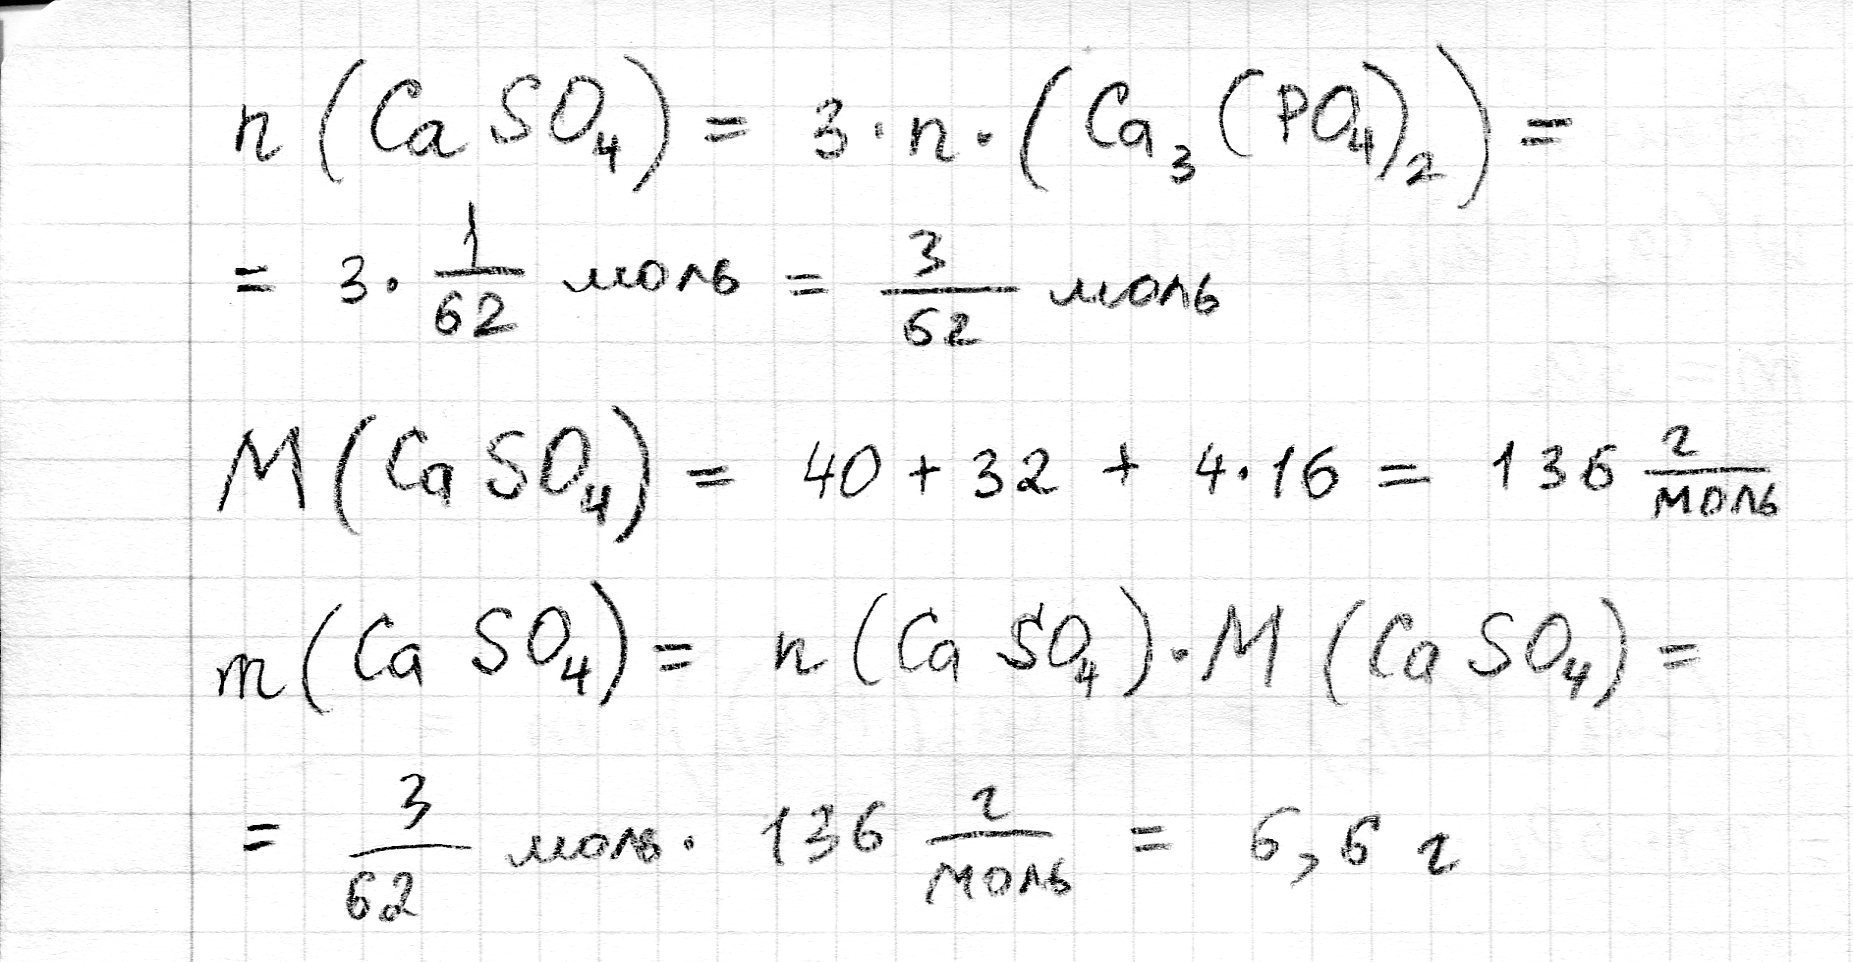 n (CaSO₄) = 3 · n · (Ca₃(PO₄)₂) =
= 3 · 1/62 моль = 3/62 моль
M (CaSO₄) = 40 + 32 + 4 · 16 = 136 г/моль
m (CaSO₄) = n (CaSO₄) · M (CaSO₄) =
= 3/62 моль · 136 г/моль = 6,6 г